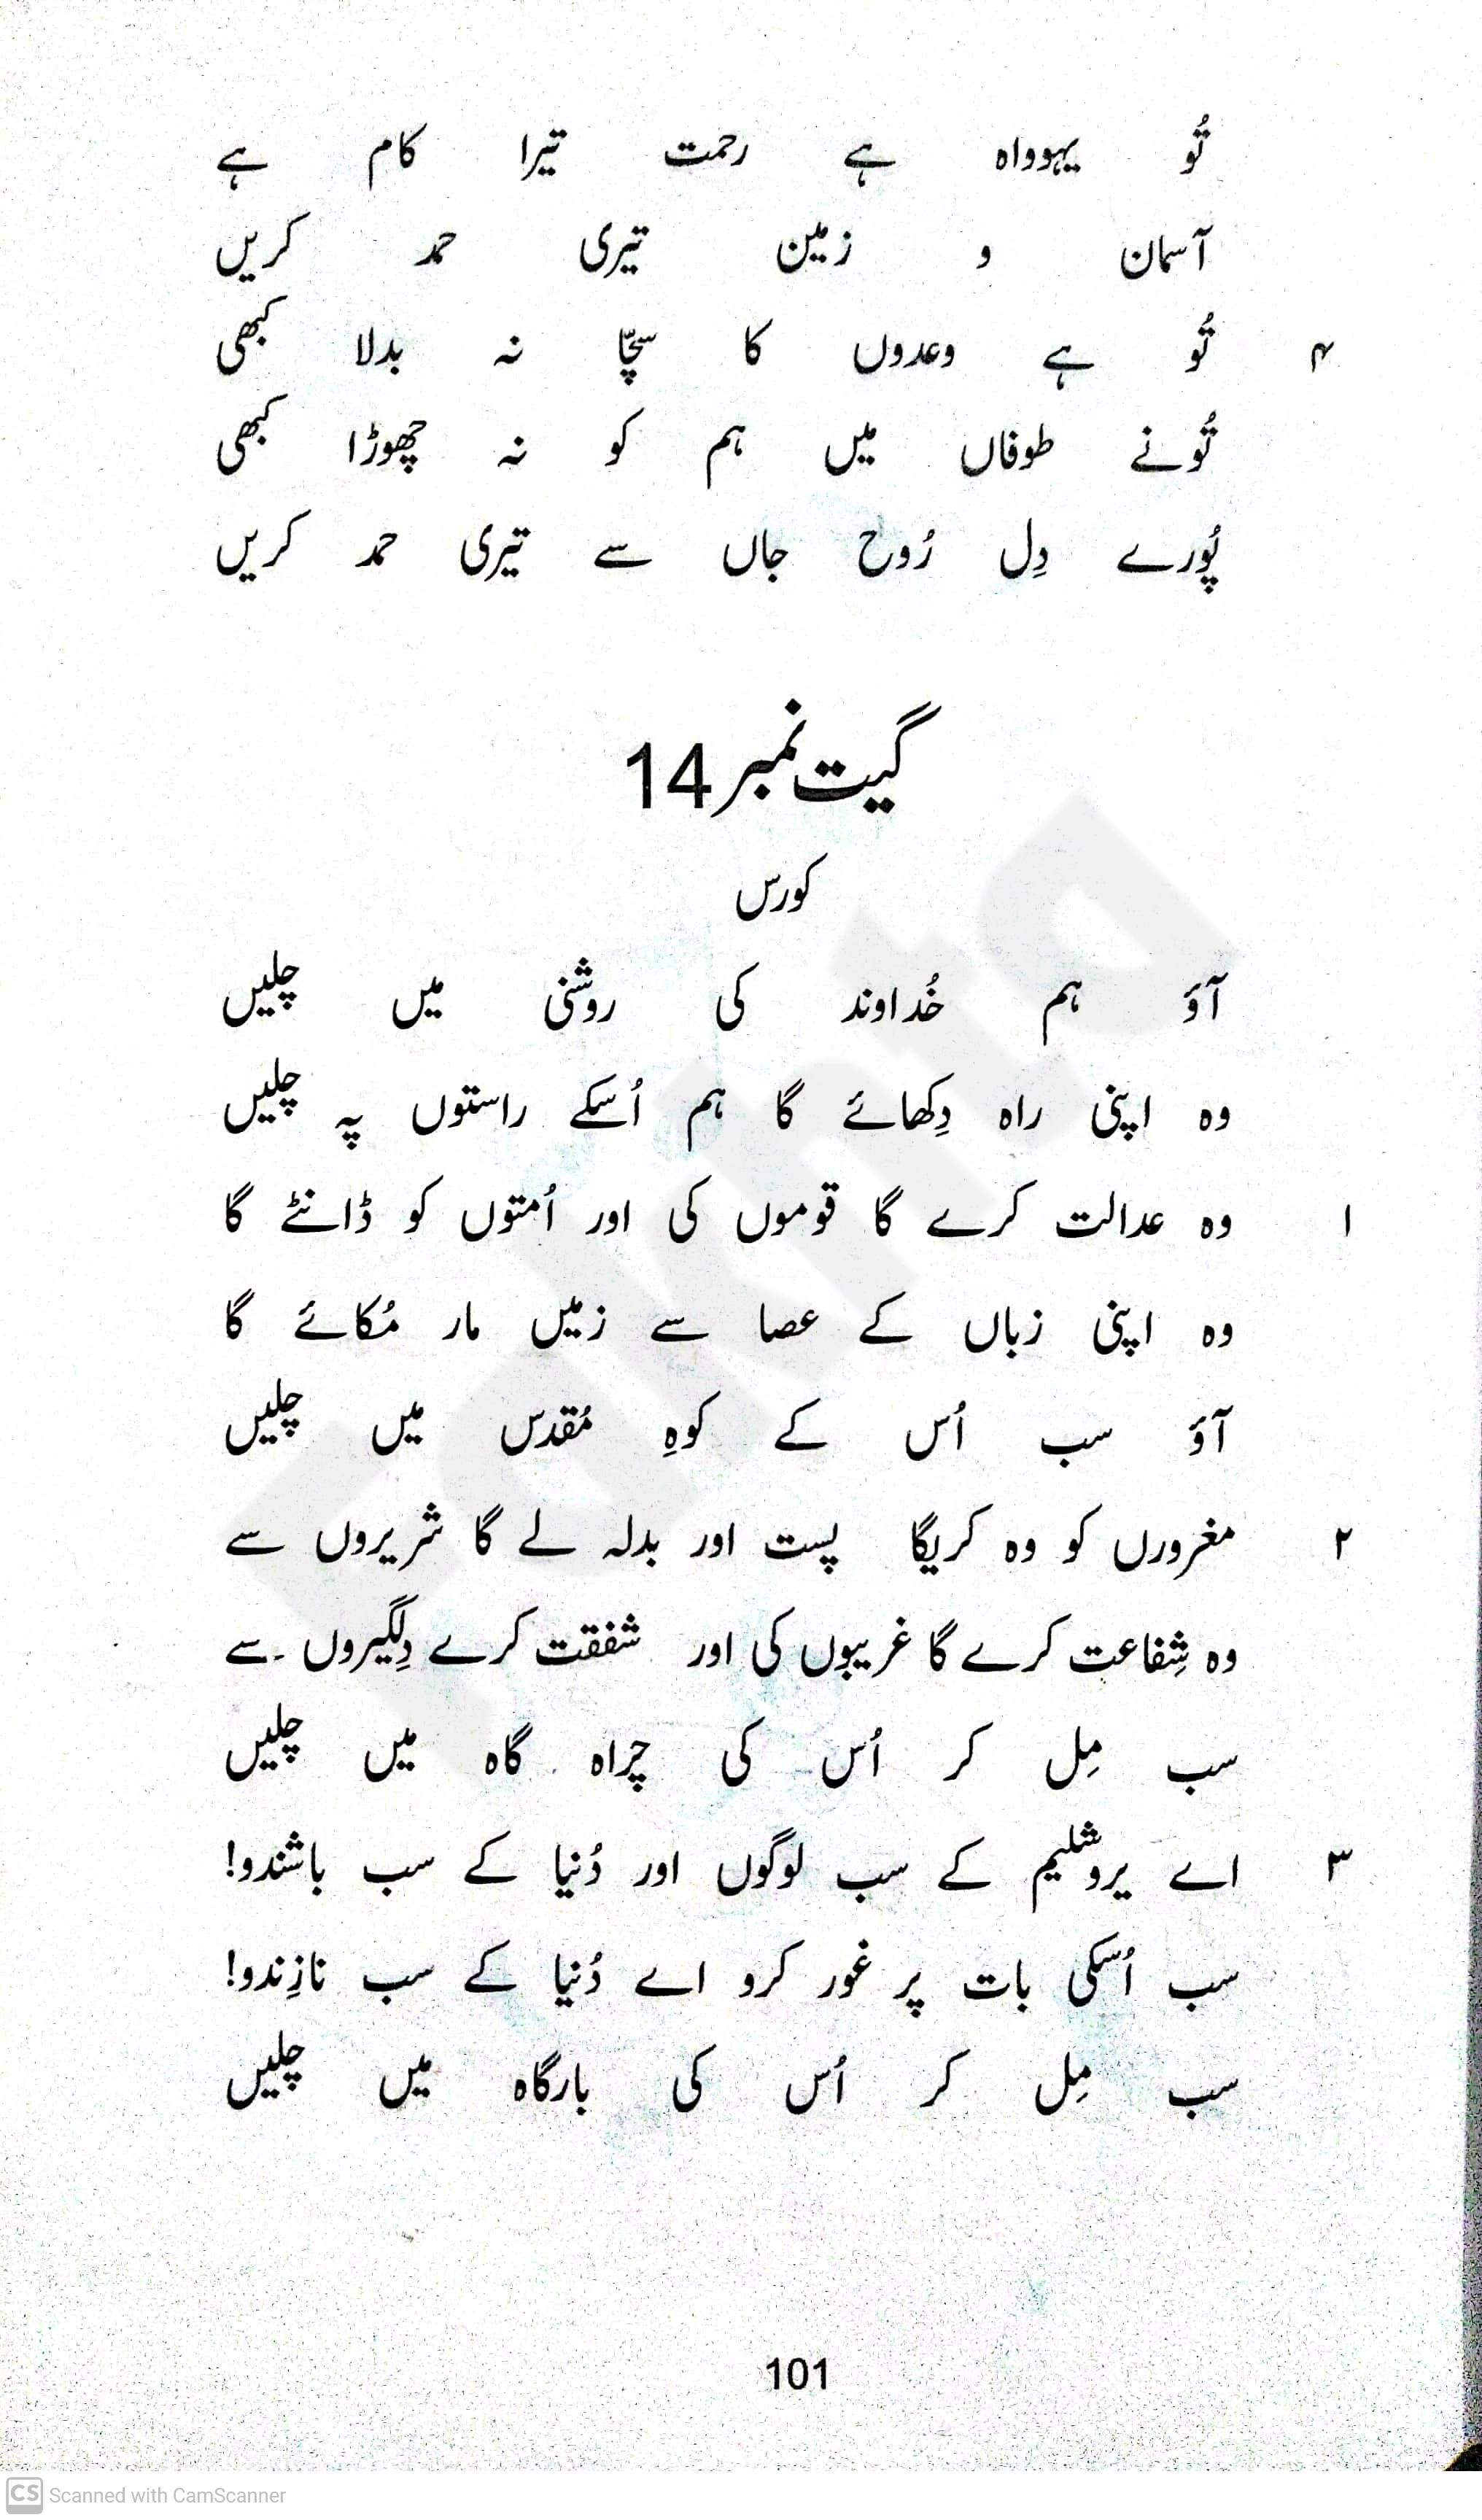 تُو یہوواہ ہے رحمت تیرا کام ہے
آسمان و زمین تیری حمد کریں
۴ تُو ہے وعدوں کا سچّا نہ بدلا کبھی
تُونے طوفاں میں ہم کو نہ چھوڑا کبھی
پُورے دِل رُوح جاں سے تیری حمد کریں
گیت نمبر 14
کورس
آؤ ہم خُداوند کی روشنی میں چلیں
وہ اپنی راہ دِکھائے گا ہم اُسکے راستوں پہ چلیں
۱ وہ عدالت کرے گا قوموں کی اور اُمتوں کو ڈانٹے گا
وہ اپنی زباں کے عصا سے زمیں مار مُکائے گا
آؤ سب اُس کے کوہِ مُقدس میں چلیں
۲ مغرورں کو وہ کریگا پست اور بدلہ لے گا شریروں سے
وہ شِفاعت کرے گا غریبوں کی اور شفقت کرے دِلگیروں ۔سے
سب مِل کر اُس کی چراہ گاہ میں چلیں
۳ اے یروشلیم کے سب لوگوں اور دُنیا کے سب باشندو!
سب اُسکی بات پر غور کرو اے دُنیا کے سب نازِندو!
سب مِل کر اُس کی بارگاہ میں چلیں
101
CS Scanned with CamScanner